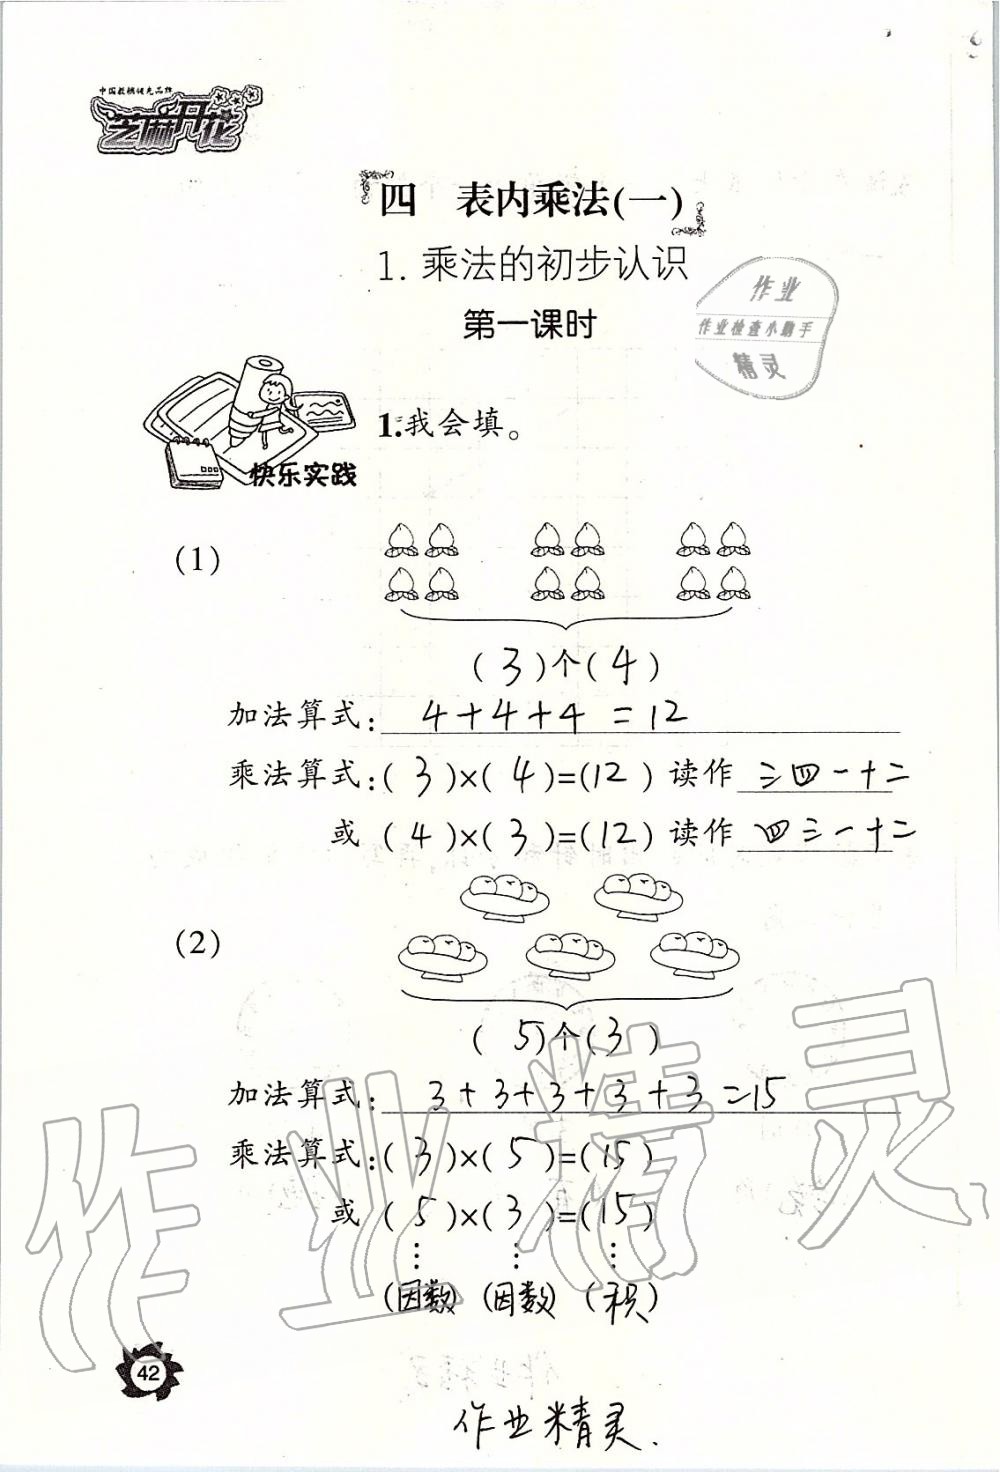 中国教辅优先品牌
芝麻开花
四 表内乘法(一)
1. 乘法的初步认识
第一课时
作业
作业检查小助手
精灵
快乐实践
1.我会填。
(1)
(3)个(4)
加法算式: 4+4+4=12
乘法算式:(3)×(4)=(12)读作 三四一十二
或(4)×(3)=(12)读作 四三一十二
(2)
(5)个(3)
加法算式: 3+3+3+3+3=15
乘法算式:(3)×(5)=(15)
或(5)×(3)=(15)
(因数)(因数)(积)
作业精灵
42
作业精灵.